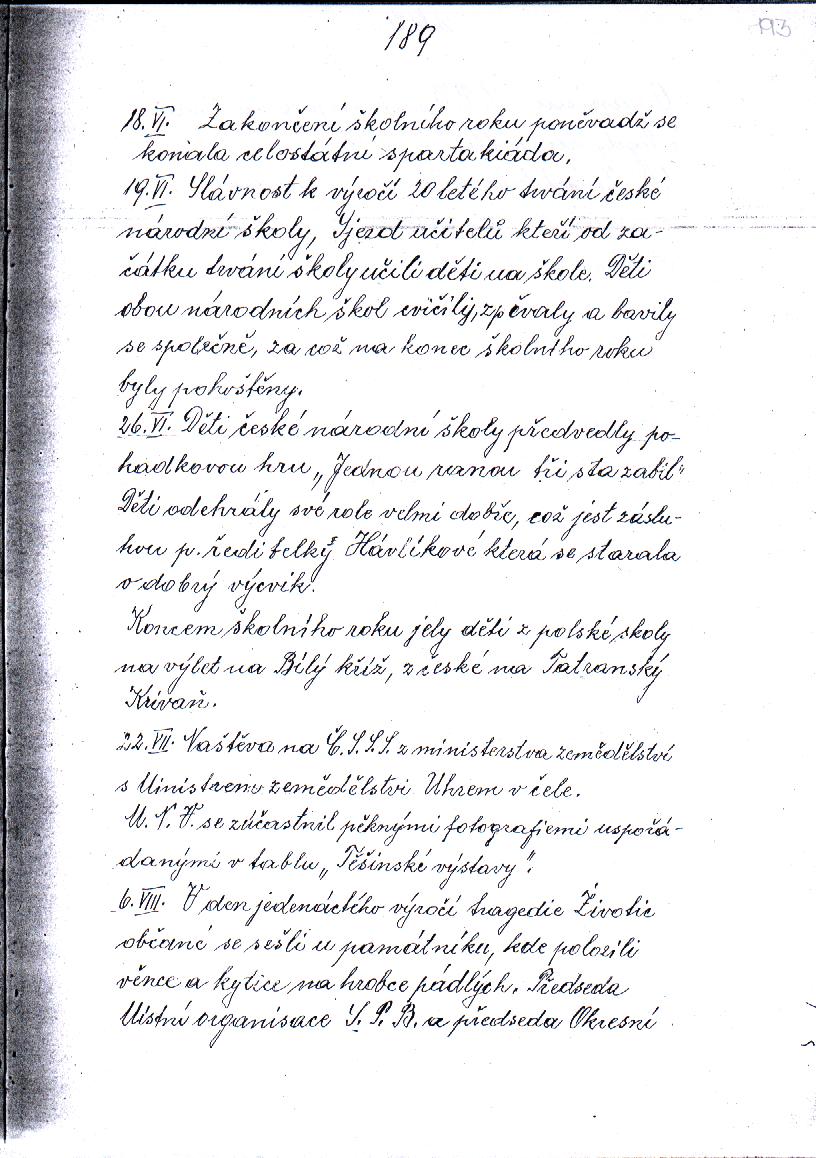 189
193
18.VI. Zakončení školního roku poněvadž se
konala celostátní spartakiáda.
19.VI. Slávnost k výročí 20 letého trvání české
národní školy, Sjezd učitelů kteří od za-
čátku trvání školy učili děti na škole. Děti
obou národních škol cvičily, zpěvaly a bavily
se společně, za což na konec školního roku
byly pohoštěny.
26.VI. Děti české národní školy předvedly po-
hadkovou hru „Jednou ranou tři sta zabil"
Děti odehrály své role velmi dobře, což jest záslu-
hou p. ředitelky Hávlíkové která se starala
o dobrý výcvik.
Koncem školního roku jely děti z polské školy
na výlet na Bílý kříž, z české na Tatranský
Kriváň.
22.VII. Naštěva na Č.S.S.S. z ministerstva zemědělství
s Ministrem zemědělství Uhrem v čele.
M.N.V. se zúčastnil pěknými fotografiemi uspořá-
danými v tablu „Těšínské výstavy".
6.VIII. V den jedenáctého výročí tragedie Životic
občané se sešli u památníku, kde položili
věnce a kytice na hrobce pádlých. Předseda
Místní organisace S.P.B. a předseda Okresní